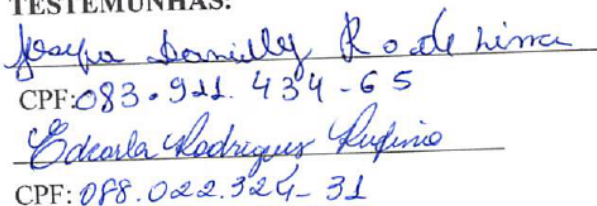 TESTEMUNHAS:
Josefa Danielly R. de Lima
CPF: 083.911.434-65
Edcarla Rodrigues Rufino
CPF: 088.022.324-31